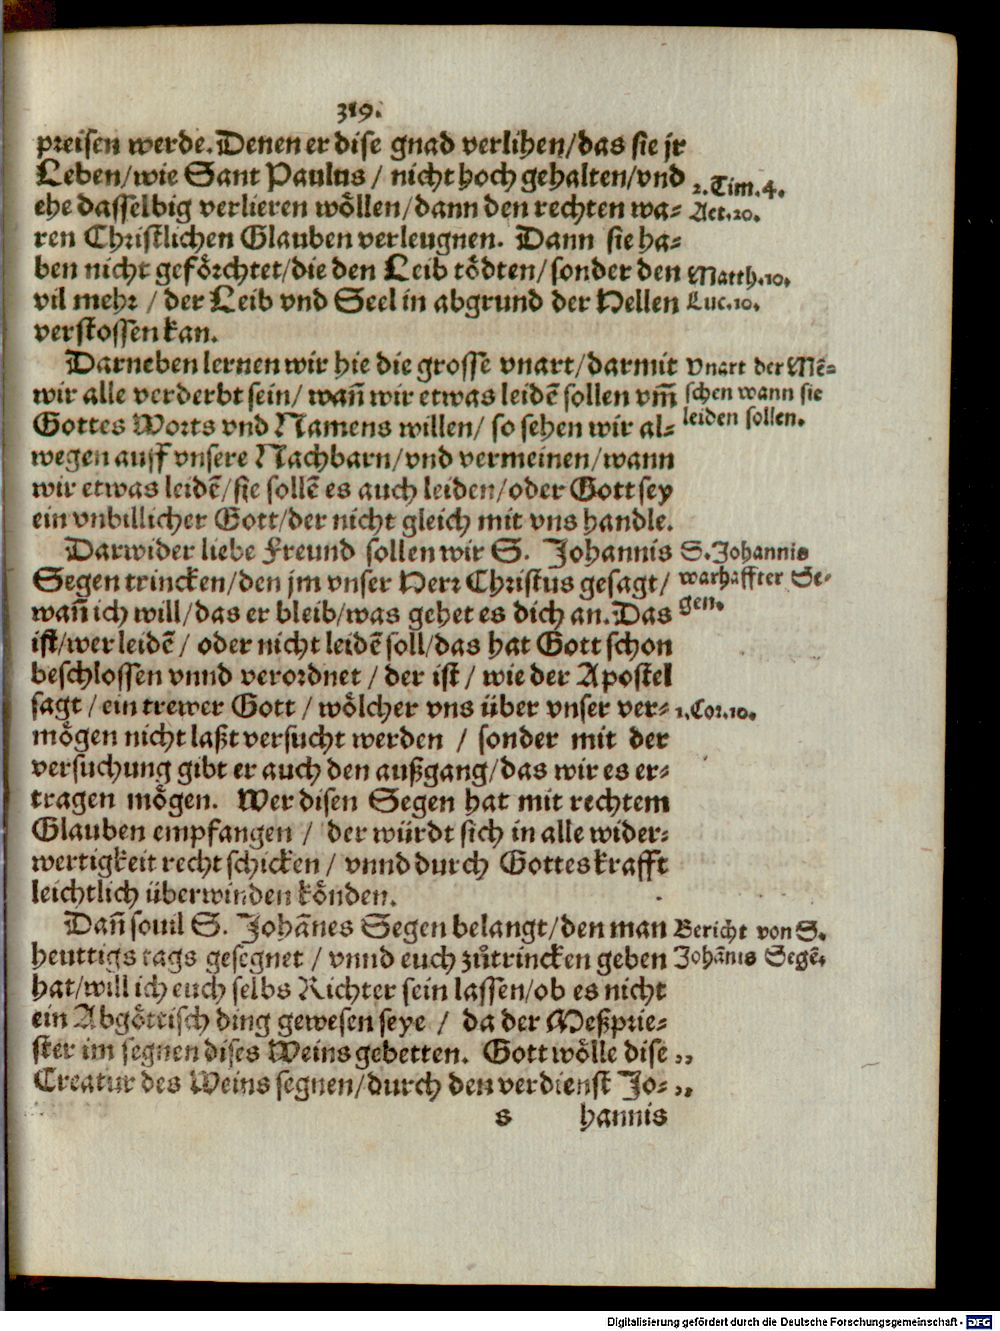 319.
preisen werde. Denen er dise gnad verlihen/das sie jr
Leben/wie Sant Paulus / nicht hoch gehalten/vnd
2. Tim. 4.
ehe dasselbig verlieren wöllen/dann den rechten wa-
Act. 20.
ren Christlichen Glauben verleugnen. Dann sie ha-
ben nicht geförchtet/die den Leib tödten/sonder den
Matth. 10.
vil mehr / der Leib vnd Seel in abgrund der Hellen
Luc. 10.
verstossen kan.
Darneben lernen wir hie die grosse vnart/darmit
Vnart der Mē-
wir alle verderbt sein/ wañ wir etwas leidē sollen vm̄
schen wann sie
Gottes Worts vnd Namens willen/ so sehen wir al-
leiden sollen.
wegen auff vnsere Nachbarn/vnd vermeinen/wann
wir etwas leidē/sie sollē es auch leiden/oder Gott sey
ein vnbillicher Gott/der nicht gleich mit vns handle.
Darwider liebe Freund sollen wir S. Johannis
S. Johannis
Segen trincken/den jm vnser Herr Christus gesagt/
warhaffter Se-
wañ ich will/das er bleib/was gehet es dich an. Das
gen.
ist/wer leidē / oder nicht leidē soll/das hat Gott schon
beschlossen vnnd verordnet / der ist / wie der Apostel
sagt / ein trewer Gott / wölcher vns über vnser ver-
1. Cor. 10.
mögen nicht laßt versucht werden / sonder mit der
versuchung gibt er auch den außgang/das wir es er-
tragen mögen. Wer disen Segen hat mit rechtem
Glauben empfangen / der würdt sich in alle wider-
wertigkeit recht schicken / vnnd durch Gottes krafft
leichtlich überwinden könden.
Dañ souil S. Johānes Segen belangt/den man
Bericht von S.
heuttigs tags gesegnet / vnnd euch zůtrincken geben
Johānis Segē.
hat/will ich euch selbs Richter sein lassen/ob es nicht
ein Abgöttisch ding gewesen seye / da der Meßprie-
ster im segnen dises Weins gebetten. Gott wölle dise „
Creatur des Weins segnen/durch den verdienst Jo- „
s hannis
Digitalisierung gefördert durch die Deutsche Forschungsgemeinschaft - DFG